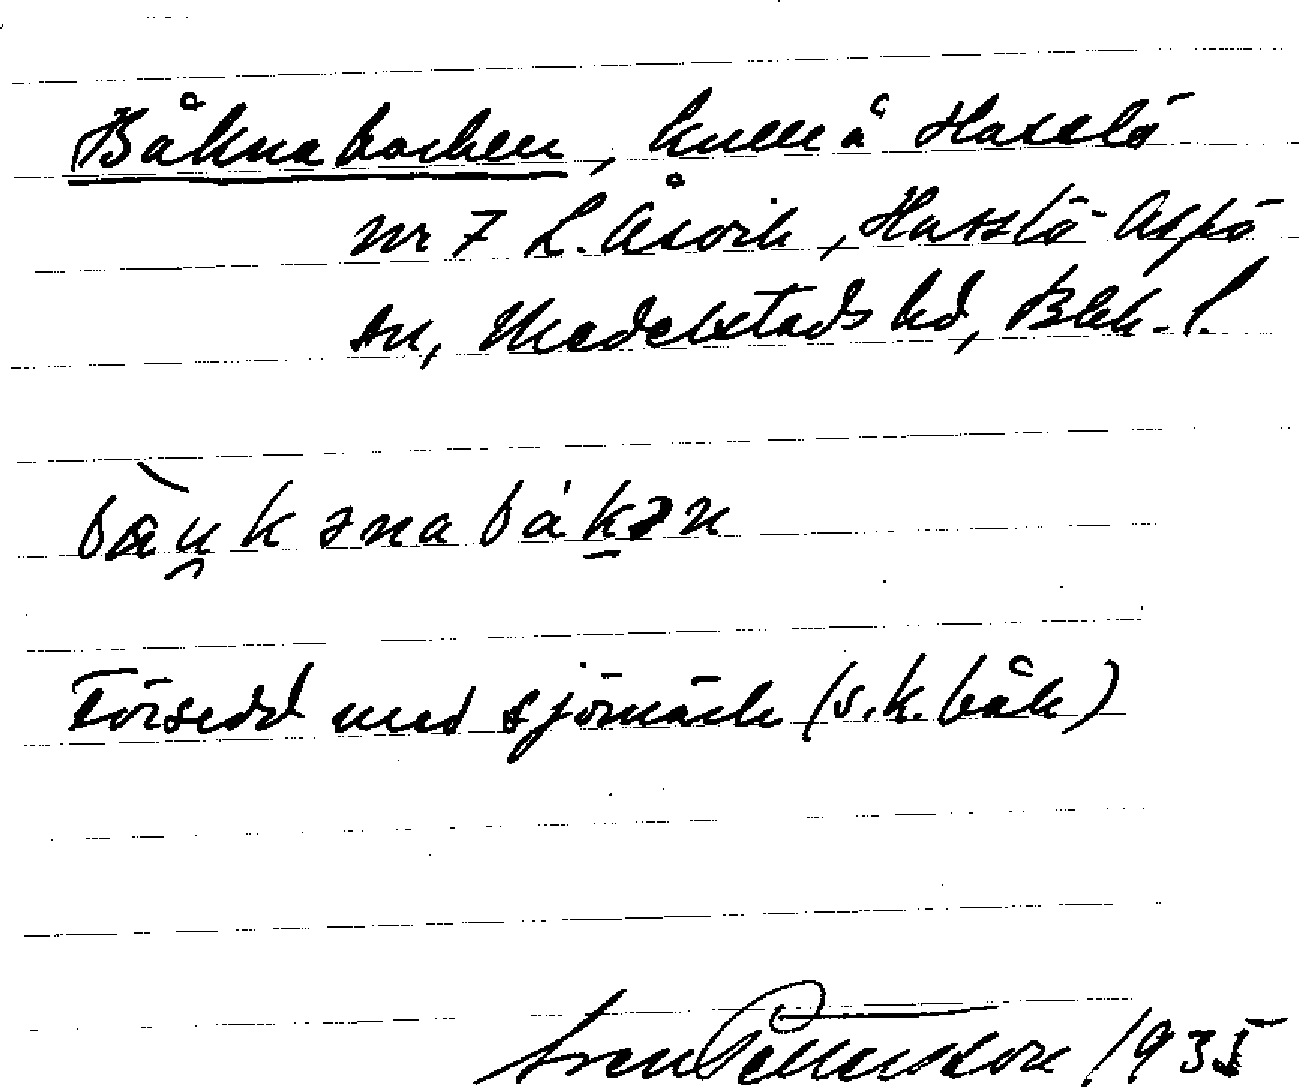 Båknabacken, kulle å Hasslö
nr 7 L. Åsvik, Hasslö-Aspö
sn, Medelstads hd, Blek. l.
bæu̯kənabákən
Försedd med sjömärke (s.k. båk)
Sven Pettersson 1935